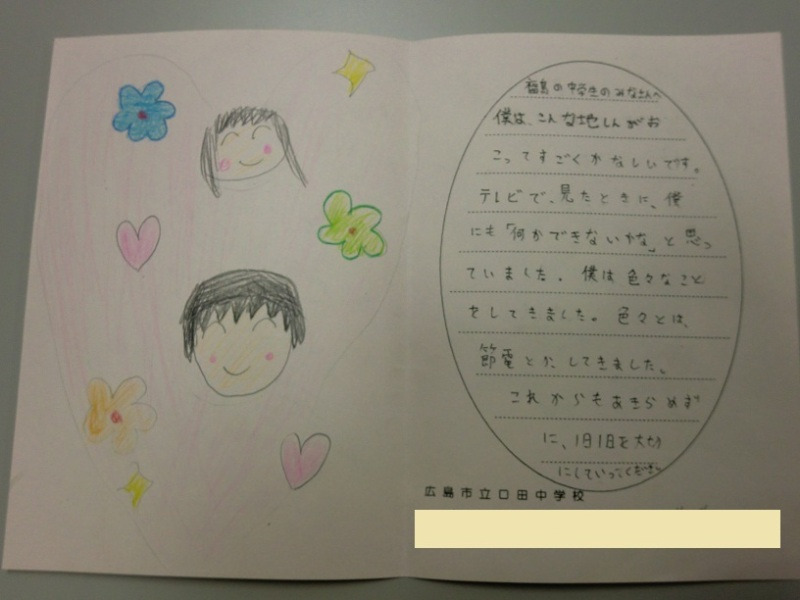 福島の中学生のみなさんへ
僕は、こんな地しんがお
こってすごくかなしいです。
テレビで、見たときに、僕
にも「何かできないかな」と思っ
ていました。僕は色々なこと
をしてきました。色々とは、
節電とか、してきました。
これからもあきらめず
に、1日1日を大切
にしていってください
広島市立口田中学校